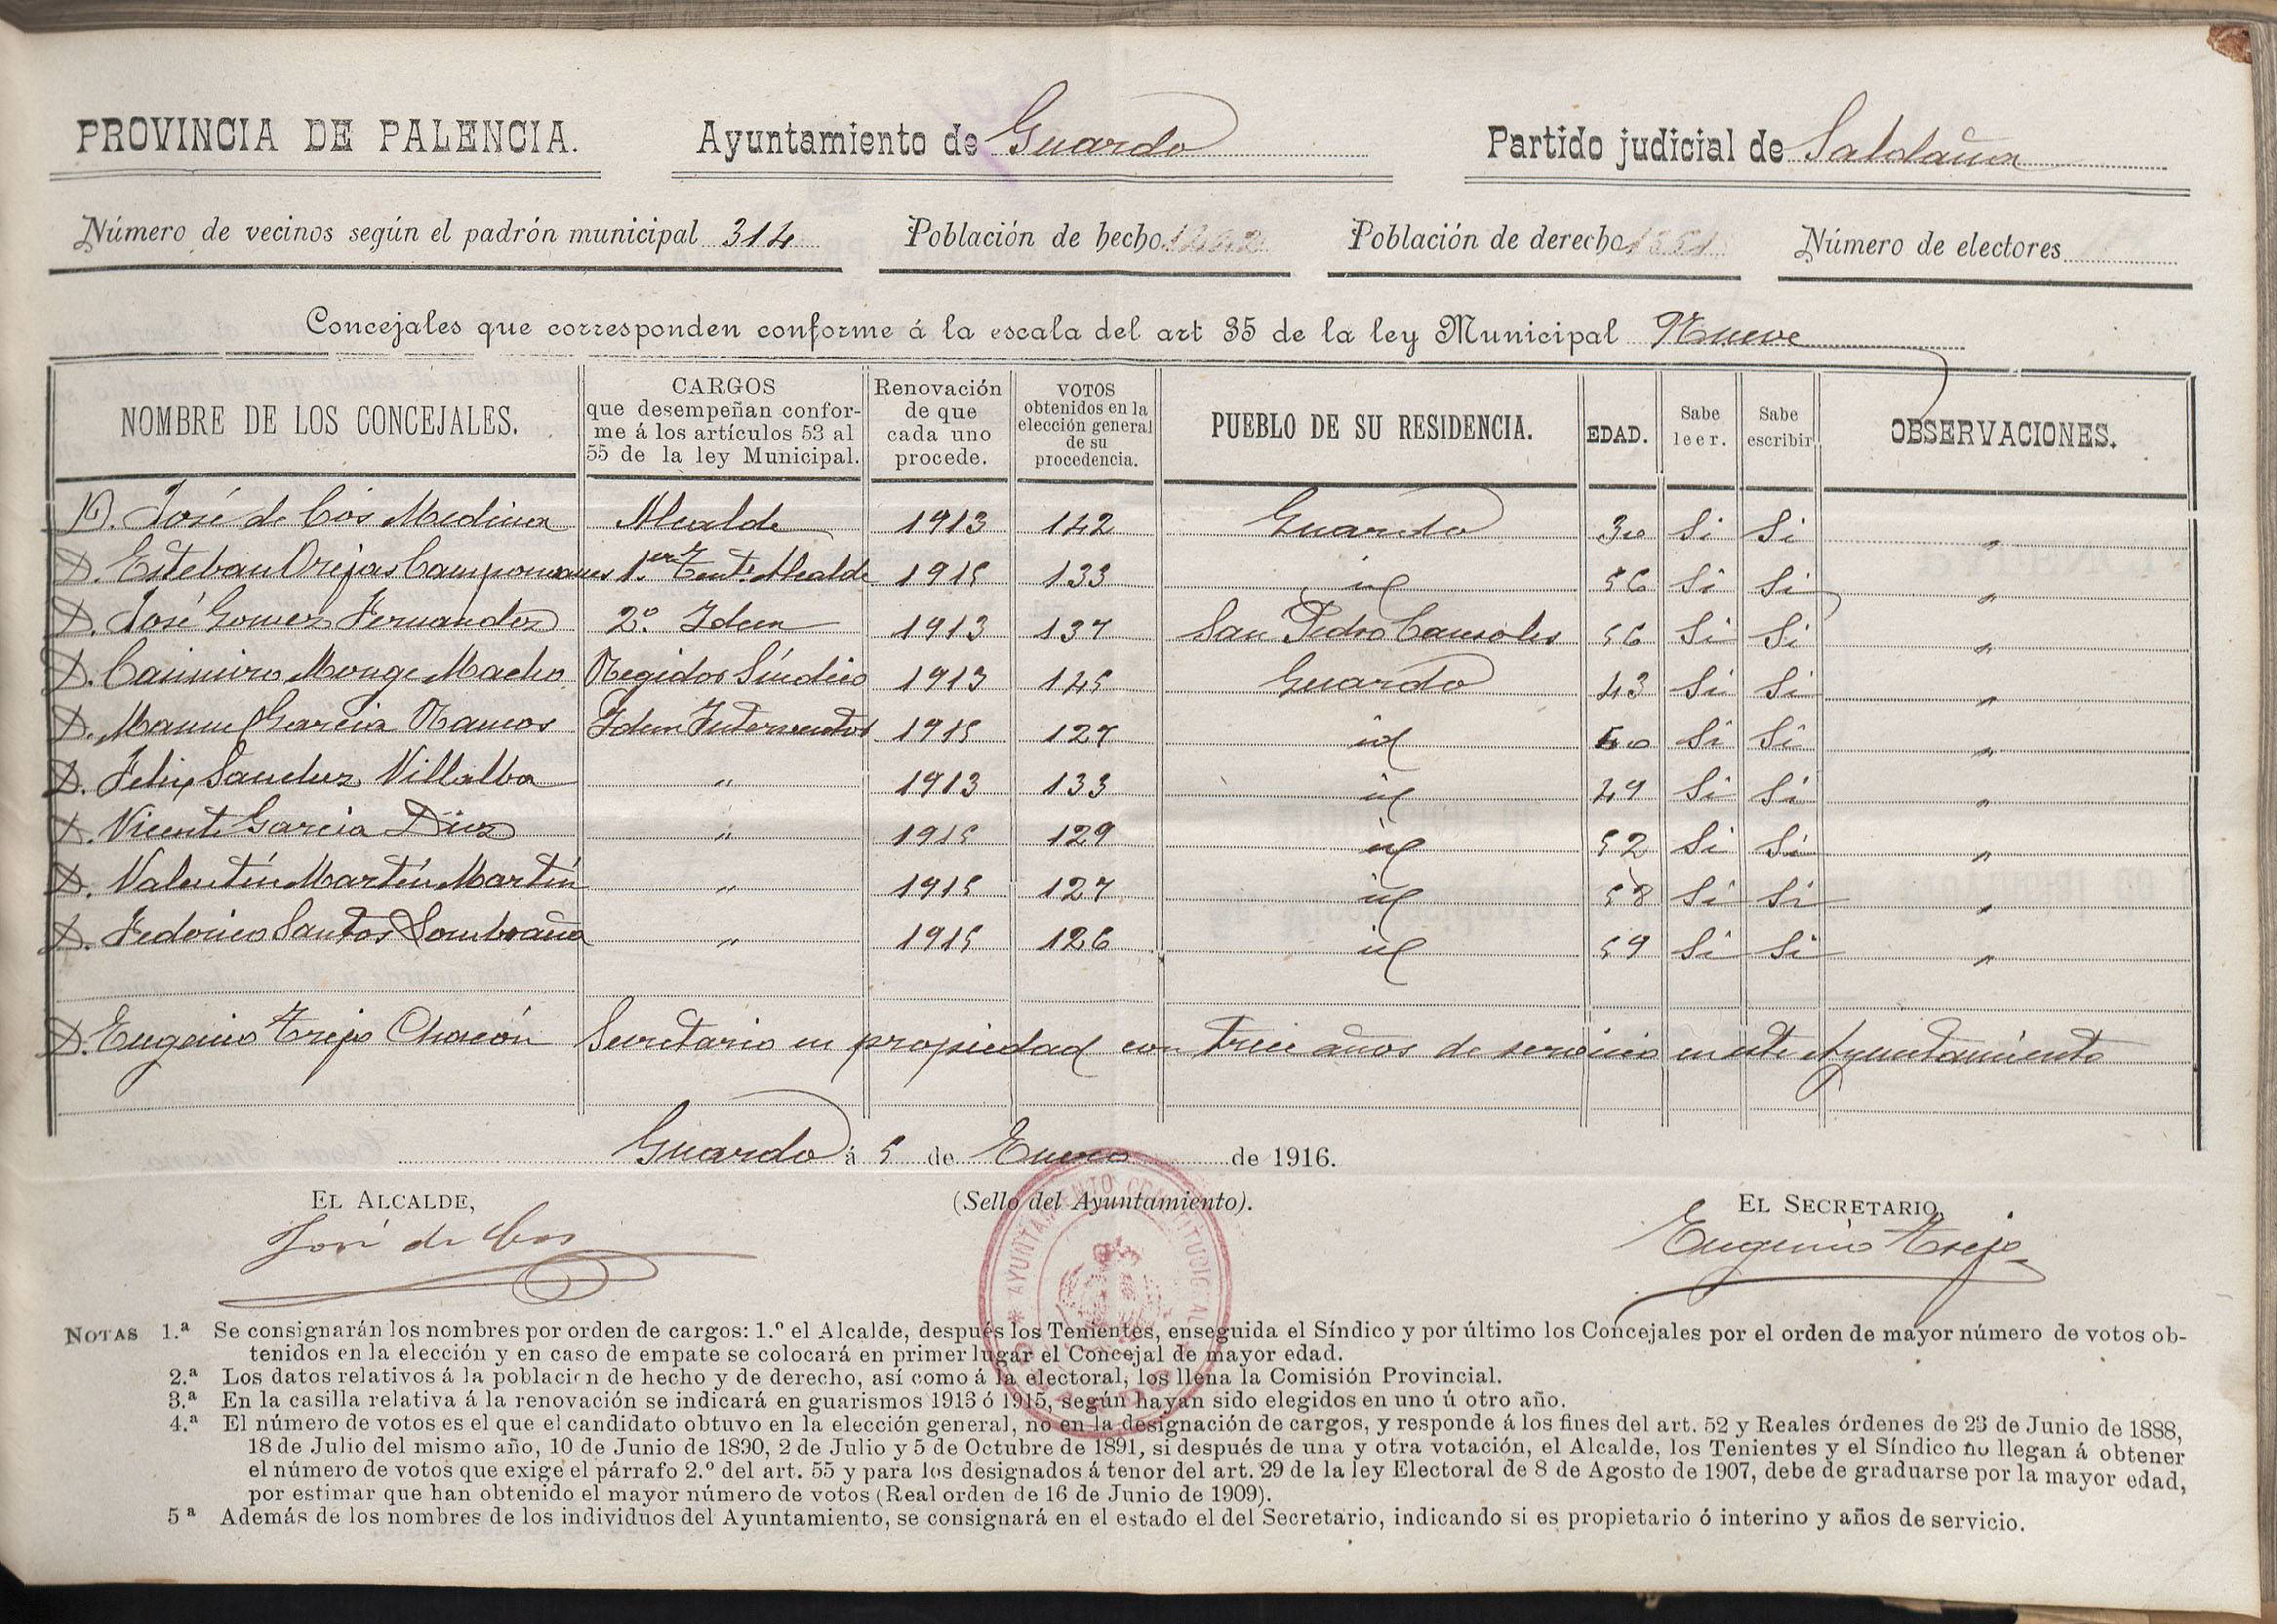 PROVINCIA DE PALENCIA. Ayuntamiento de Guardo Partido judicial de Saldaña
Número de vecinos según el padrón municipal 314 Población de hecho Población de derecho 1551 Número de electores
Concejales que corresponden conforme á la escala del art 35 de la ley Municipal Nueve
NOMBRE DE LOS CONCEJALES. CARGOS que desempeñan confor- me á los artículos 53 al 55 de la ley Municipal. Renovación de que cada uno procede. VOTOS obtenidos en la elección general de su procedencia. PUEBLO DE SU RESIDENCIA. EDAD. Sabe leer. Sabe escribir OBSERVACIONES.
D. José de Cós Medina Alcalde 1913 142 Guardo 30 Si Si "
D. Esteban Orejas Campomanes 1.er Tent.e Alcalde 1915 133 id 56 Si Si "
D. José Gomez Fernandez 2.º Idem 1913 137 San Pedro Cansoles 56 Si Si "
D. Casimiro Monge Macho Regidor Síndico 1913 145 Guardo 43 Si Si "
D. Manuel Garcia Ramos Idem Interventor 1915 127 id 50 Si Si "
D. Felix Sanchez Villalba " 1913 133 id 49 Si Si "
D. Vicente Garcia Diez " 1915 129 id 52 Si Si "
D. Valentín Martín Martín " 1915 127 id 58 Si Si "
D. Federico Santos Lombraña " 1915 126 id 59 Si Si "
D. Eugenio Trejo Chacón Secretario en propiedad con trece años de servicio en este Ayuntamiento
Guardo á 5 de Enero de 1916.
EL ALCALDE, (Sello del Ayuntamiento). EL SECRETARIO,
José de Cos Eugenio Trejo
AYUNTAMIENTO CONSTITUCIONAL
NOTAS 1.ª Se consignarán los nombres por orden de cargos: 1.º el Alcalde, después los Tenientes, enseguida el Síndico y por último los Concejales por el orden de mayor número de votos ob-
tenidos en la elección y en caso de empate se colocará en primer lugar el Concejal de mayor edad.
2.ª Los datos relativos á la población de hecho y de derecho, así como á la electoral, los llena la Comisión Provincial.
3.ª En la casilla relativa á la renovación se indicará en guarismos 1913 ó 1915, según hayan sido elegidos en uno ú otro año.
4.ª El número de votos es el que el candidato obtuvo en la elección general, no en la designación de cargos, y responde á los fines del art. 52 y Reales órdenes de 23 de Junio de 1888,
18 de Julio del mismo año, 10 de Junio de 1890, 2 de Julio y 5 de Octubre de 1891, si después de una y otra votación, el Alcalde, los Tenientes y el Síndico no llegan á obtener
el número de votos que exige el párrafo 2.º del art. 55 y para los designados á tenor del art. 29 de la ley Electoral de 8 de Agosto de 1907, debe de graduarse por la mayor edad,
por estimar que han obtenido el mayor número de votos (Real orden de 16 de Junio de 1909).
5ª Además de los nombres de los individuos del Ayuntamiento, se consignará en el estado el del Secretario, indicando si es propietario ó interino y años de servicio.